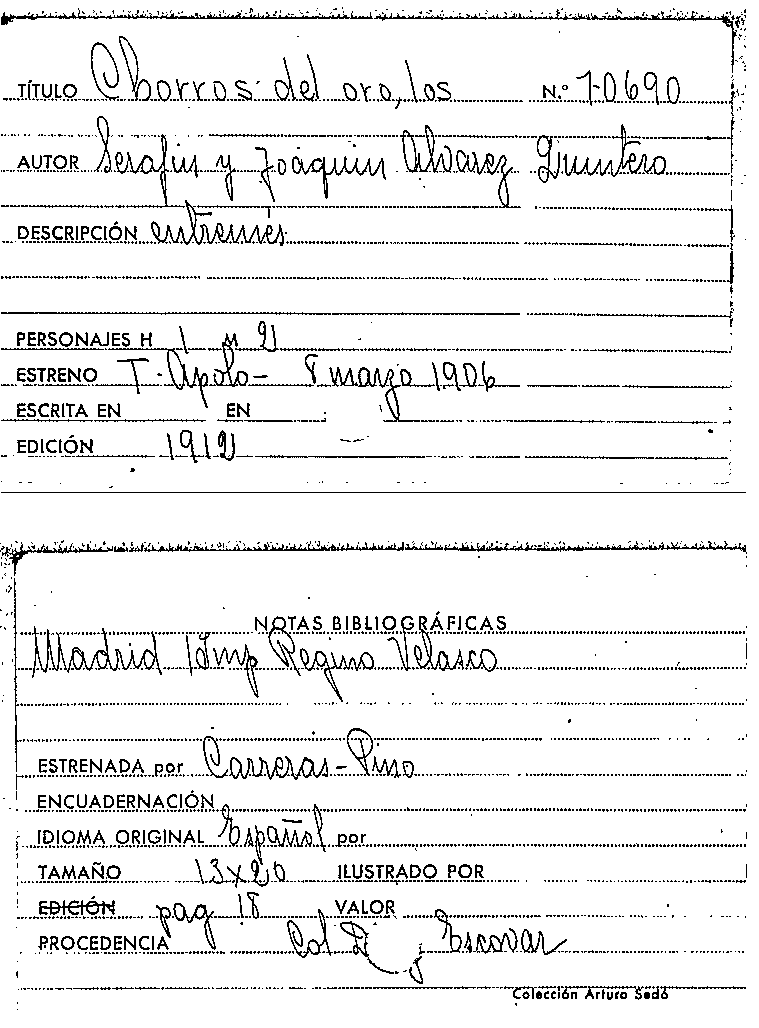 TÍTULO Chorros del oro, los N.º 1-0690
AUTOR Serafin y Joaquin Alvarez Quintero
DESCRIPCIÓN entremés
PERSONAJES H 1 M 2
ESTRENO T. Apolo - 8 marzo 1906
ESCRITA EN EN
EDICIÓN 1912
NOTAS BIBLIOGRÁFICAS
Madrid Imp Regino Velasco
ESTRENADA por Carreras - Pino
ENCUADERNACIÓN
IDIOMA ORIGINAL Español por
TAMAÑO 13x20 ILUSTRADO POR
EDICIÓN pag 18 VALOR
PROCEDENCIA Col y Escovar
Colección Arturo Sedó